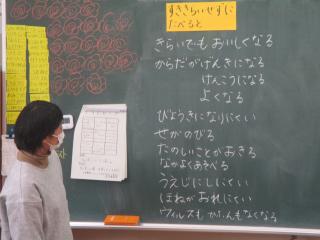 すききらいせずに
たべると
きらいでも おいしくなる
からだがげんきになる
けんこうになる
よくなる
びょうきになりにくい
せがのびる
たのしいことがおきる
なかよくあそべる
うえじにしにくい
ほねがおれにくい
ウィルスも かふんもなくなる